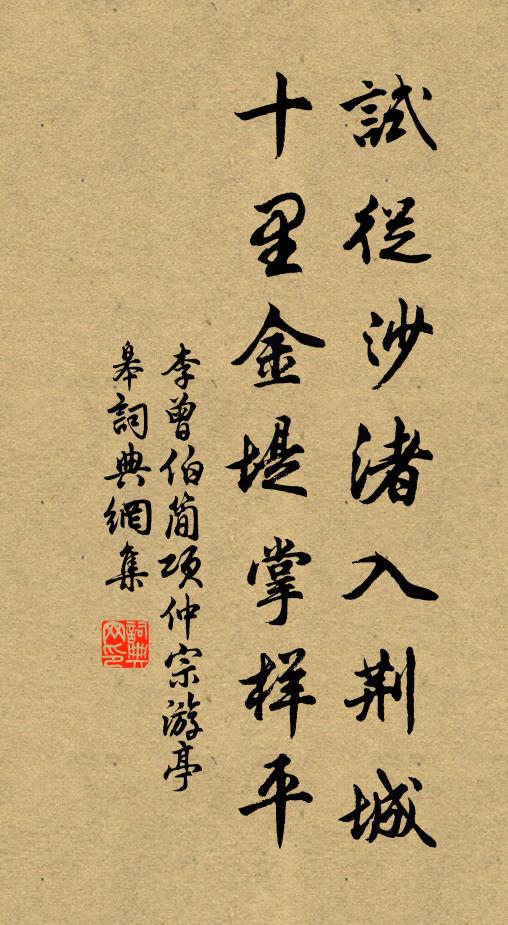 試從沙渚入荆城
十里金堤掌样平
李曾伯简项仲宗游亭
皋詞典網集
詞典
网印